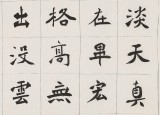 淡天真
在畢宏
格高無
出没雲